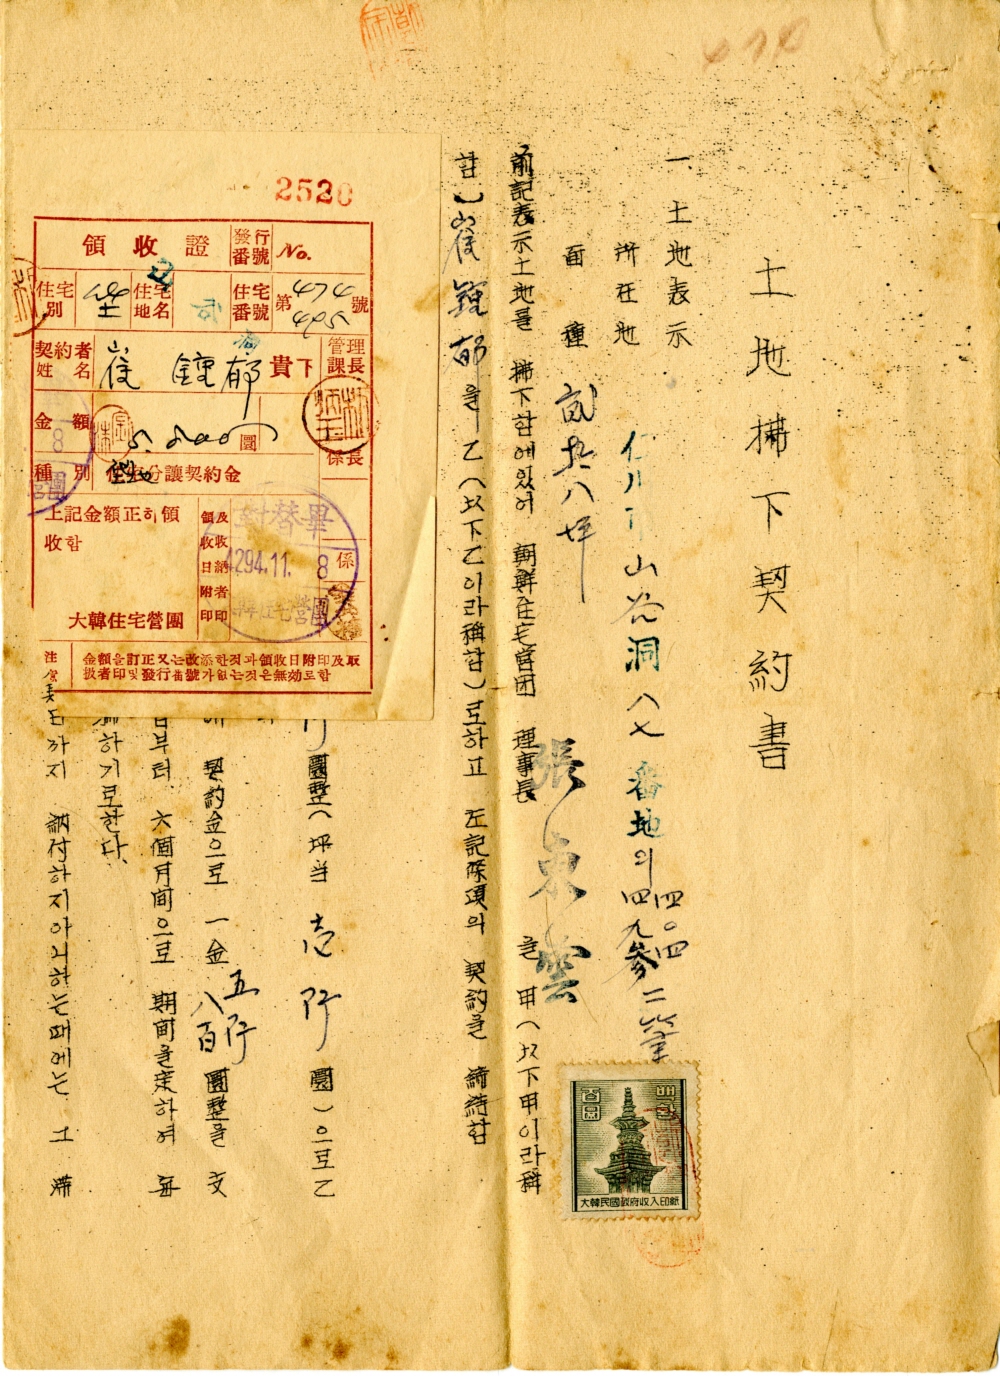 土地拂下契約書
一 土地表示
所在地 仁川市山谷洞八七番地의 四〇四 四九參 二筆
面種 貳拾八坪
前記表示土地를 拂下함에있어 朝鮮住宅営団 理事長 張東雲 을 甲(以下甲이라稱
함) 崔鍾郁 을 乙(以下乙이라稱함)로하고 左記條項의 契約을 締結함
圜整(坪当 壱阡 圜)으로乙
契約金으로 一金 五阡八百 圜整을 支
부터 六個月間으로 期間을定하여 每
하기로한다.
까지 納付하지아니하는때에는 그 滞
2520
領收證 發行番號 No.
住宅別 住宅地名 住宅番號 第 474 495 號
契約者姓名 崔鍾郁 貴下 管理課長
金額 5.800 圜 係長
種別 垈地 分讓契約金
上記金額正히領收함
領收日附印 及收納者印 係
對替畢
4294.11.8
大韓住宅營團
大韓住宅營團
注 金額을訂正又는改添한것과領收日附印及取
扱者印및發行番號가없는것은無効로함
백환
百圜
大韓民國政府收入印紙